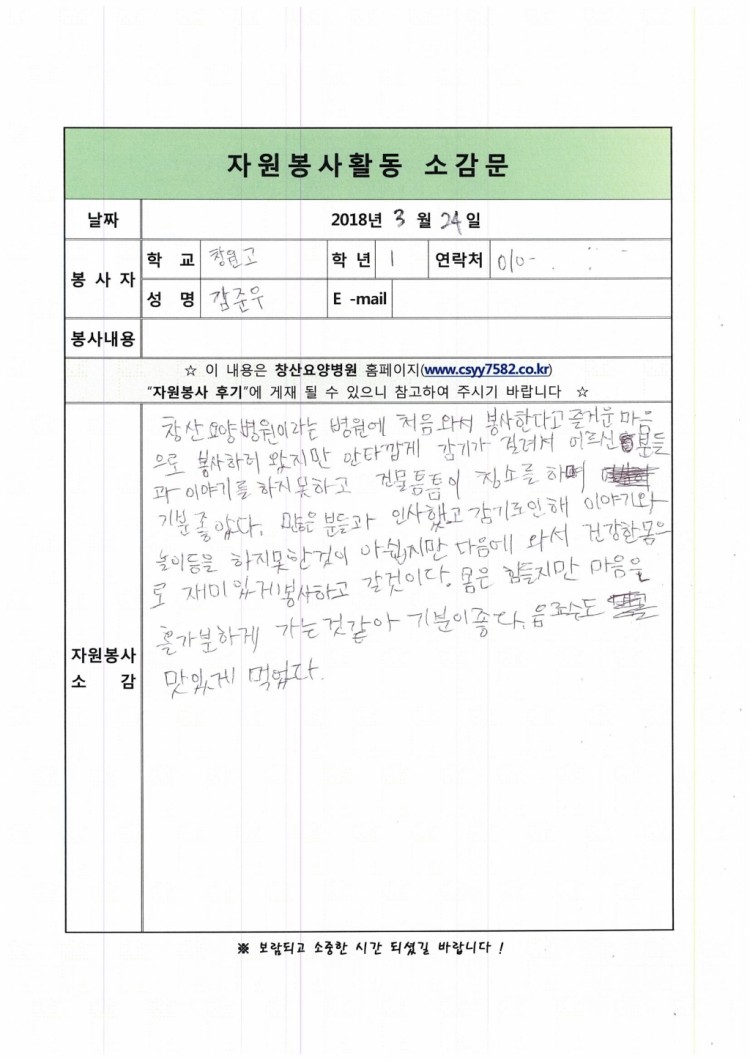 자원봉사활동 소감문
날짜 2018년 3 월 24 일
봉 사 자
학 교 창원고 학 년 1 연락처 010-
성 명 김준우 E -mail
봉사내용
☆ 이 내용은 창산요양병원 홈페이지(www.csyy7582.co.kr)
“자원봉사 후기”에 게재 될 수 있으니 참고하여 주시기 바랍니다 ☆
자원봉사
소 감
창산요양병원이라는 병원에 처음와서 봉사한다고 즐거운 마음
으로 봉사하러 왔지만 안타깝게 감기가 걸려서 어르신 분들
과 이야기를 하지못하고 건물틈틈이 청소를 하며
기분좋았다. 많은 분들과 인사했고 감기로인해 이야기와
놀이등을 하지못한것이 아쉽지만 다음에 와서 건강한몸으
로 재미있게봉사하고 갈것이다. 몸은 힘들지만 마음을
홀가분하게 가는것같아 기분이좋다. 음료수도
맛있게 먹었다.
※ 보람되고 소중한 시간 되셨길 바랍니다 !